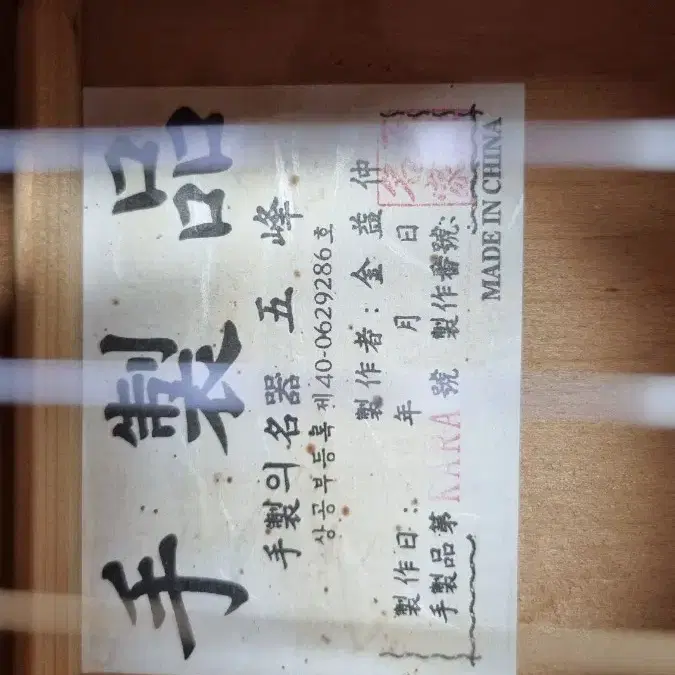 手製品
手製의 名器 五峰
상공부등록 제40-0629286호
製作者: 金益仲
製作日: 年 月 日
手製品 第 KARA 號 製作番號:
MADE IN CHINA